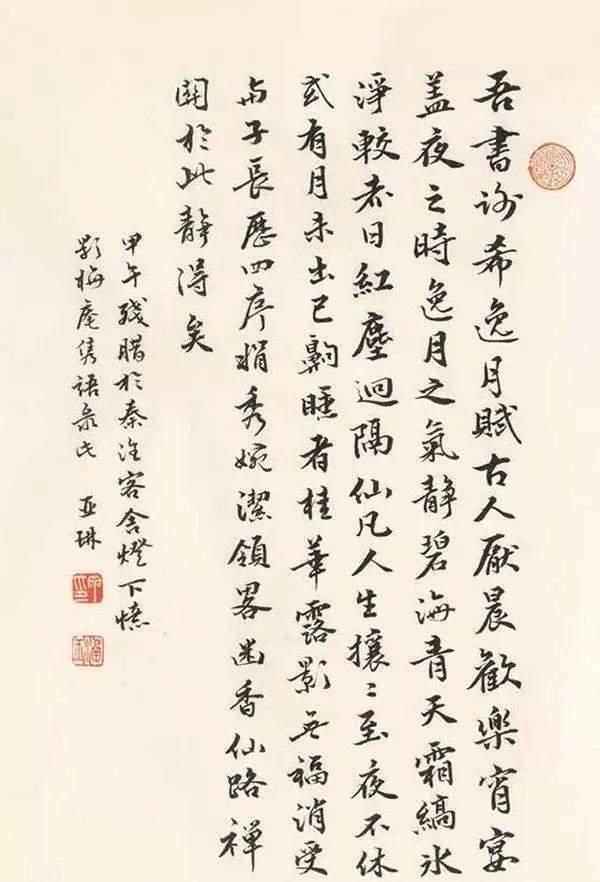 吾書謝希逸月賦古人厭晨歡樂宵宴
盖夜之時逸月之氣靜碧海青天霜縞氷
淨較赤日紅塵迥隔仙凡人生攘〻至夜不休
或有月未出已鼾睡者桂華露影無福消受
与子長歷四序娟秀婉潔領畧幽香仙路禪
關於此靜得矣
甲午殘腊於秦淮客舍燈下憶
影梅庵雋語录 亚琳